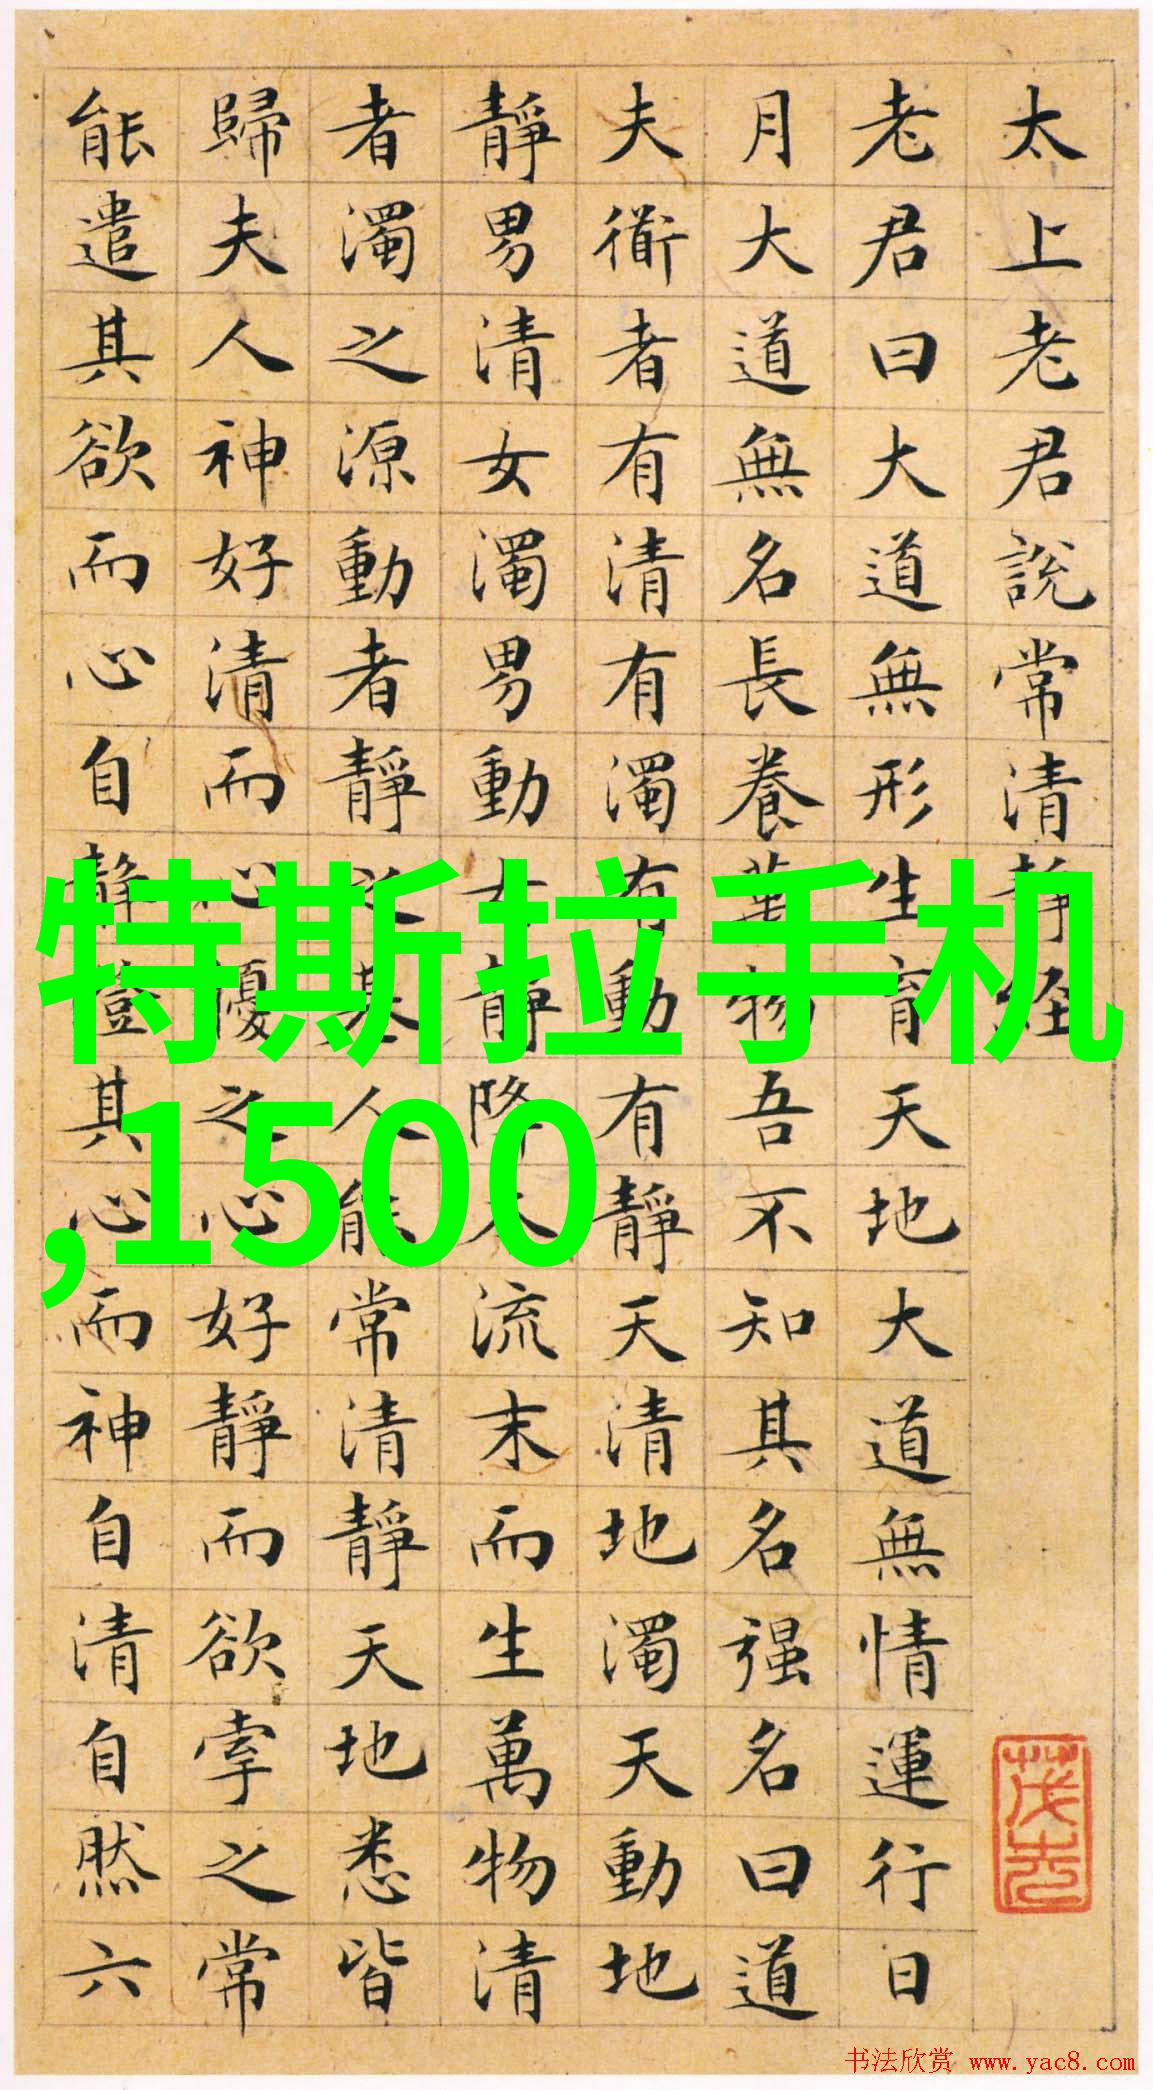 太上老君說常清靜经
老君曰大道無形生育天地大道無情運行日
月大道無名長養萬物吾不知其名强名曰道
夫衜者有清有濁有動有靜天清地濁天動地
靜男清女濁男動女靜降本流末而生萬物清
者濁之源動者靜之基人能常清靜天地悉皆
歸夫人神好清而心擾之心好靜而欲牽之常
能遣其欲而心自靜澄其心而神自清自然六
特斯拉手机
,1500
书法欣赏 www.yac8.com